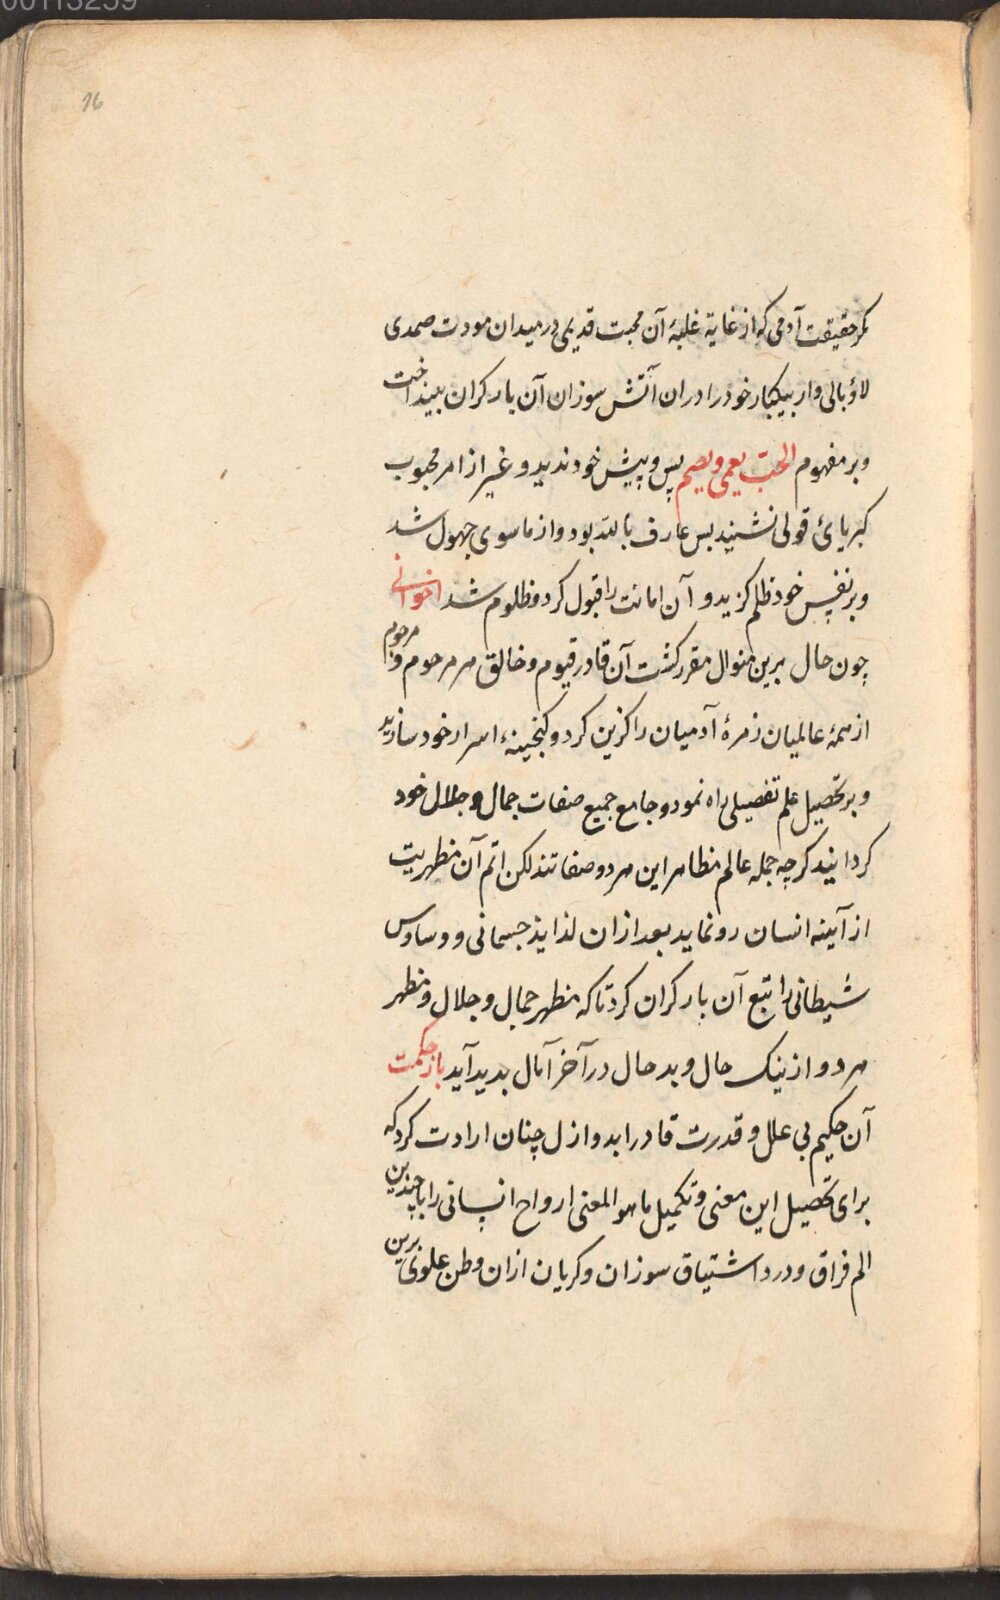 00113259
16
مکر حقیقت آدمی که از غایة غلبۀ آن محبت قدیمی در میدان مودت صمدی
لاؤبالی وار بیکبار خود را در ان آتش سوزان آن بار کران بینداخت
و بر مفهوم الحب یعمی ویصم پس و پیش خود ندید و غیر از امر محبوب
کبریائ قولی نشنید بس عارف بالله بود و از ما سوی جهول شد
و بر نفس خود ظلم کزید و آن امانت را قبول کرد و ظلوم شد اخوانی
چون حال برین منوال مقرر کشت آن قادر قیوم و خالق هر مرحوم و مرحوم
از همۀ عالمیان زمرۀ آدمیان را کزین کرد و کنجینۀ اسرار خود سازید
و بر تحصیل علم تفصیلی راه نمود و جامع جمیع صفات جمال و جلال خود
کردانید کرچه جمله عالم مظاهر این هر دو صفاتند لکن اتم آن مظهریت
از آینه انسان رو نماید بعد ازان لذایذ جسمانی و وساوس
شیطانی را تبع آن بار کران کرد تا که مظهر جمال و جلال و مظهر
هر دو از نیک حال و بد حال در آخر آمال بدید آید باز حکمت
آن حکیم بی علل و قدرت قادر ابد و ازل چنان ارادت کرد که
برای تحصیل این معنی و تکمیل ما هو المعنی ارواح انسانی را با چندین
الم فراق و درد اشتیاق سوزان و کریان ازان وطن علوی برین